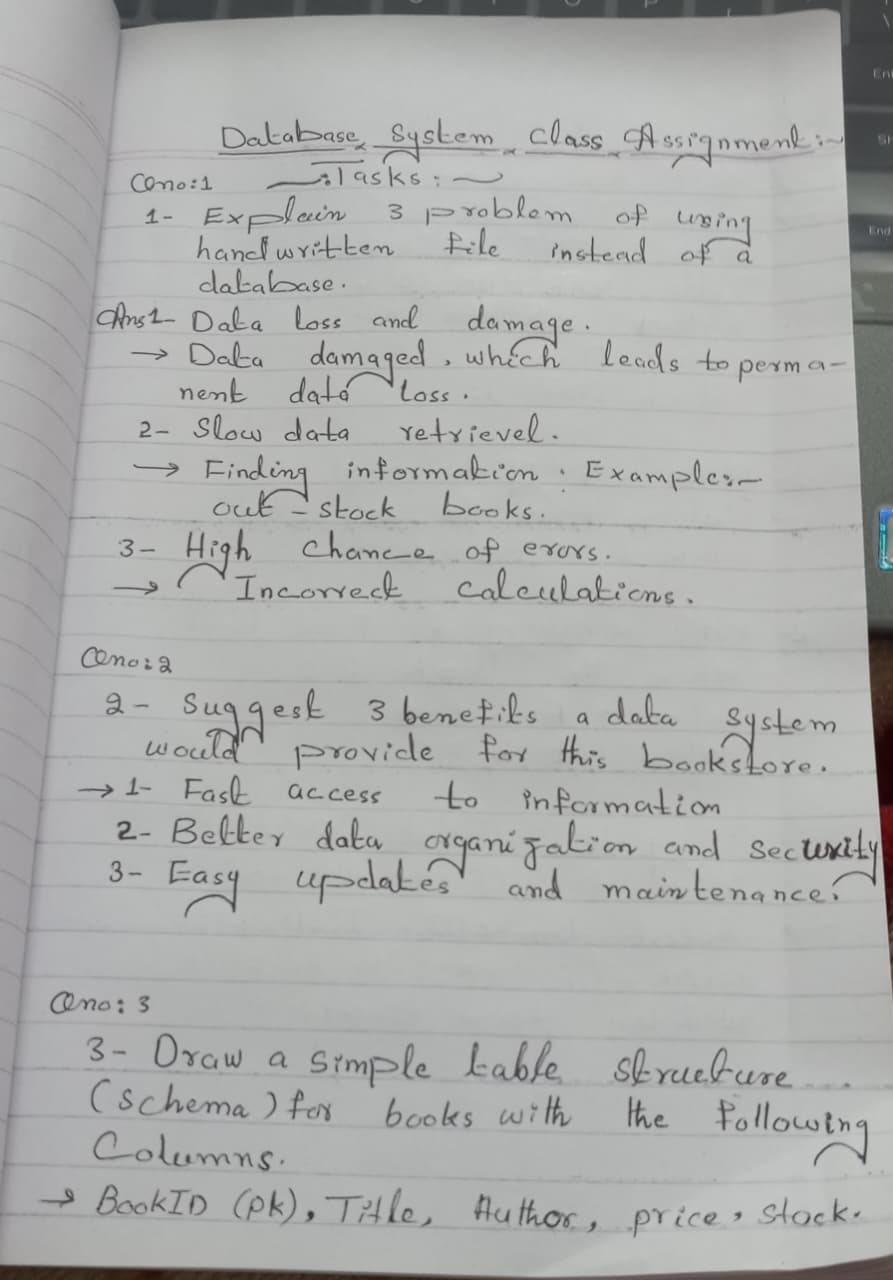 Database System Class Assignment:~
Qno:1 Tasks:~
1- Explain 3 problem of using
handwritten file instead of a
database.
Ans1- Data loss and damage.
→ Data damaged, which leads to perma-
nent data loss.
2- Slow data retrievel.
→ Finding information. Example:-
out-stock books.
3- High chance of erors.
→ Incorreck calculations.
Qno:2
2- Suggest 3 benefits a data system
would provide for this bookstore.
→ 1- Fast access to information
2- Better data organization and security
3- Easy updates and maintenance.
Qno:3
3- Draw a simple table structure...
(schema) for books with the following
Columns.
→ BookID (pk), Title, Author, price, stock.